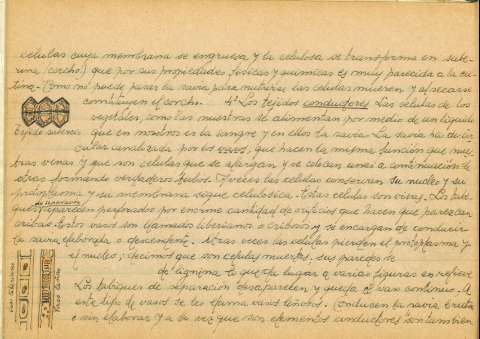 celulas cuya membrana se engruesa y la celulosa se transforma en sube-
rina (corcho) que por sus propiedades fisicas y quimicas es muy parecida a la cu-
tina. Como no puede pasar la savia para nutrirse las celulas mueren y al secarse
constituyen el corcho. 4º Los tejidos conductores Las celulas de los
vegetales, como las nuestras se alimentan por medio de un liquido
Tejido suberoso
que en nosotros es la sangre y en ellos la savia. La savia ha de cir-
cular canalizada por los vasos, que hacen la misma función que nues-
tras venas y que son celulas que se alargan y se colocan unas a continuación de
otras formando verdaderos tubos. A veces las celulas conservan su nucleo y su
protoplasma y su membrana sigue celulosica. Estas celulas son vivas. Los tabi-
ques de separación aparecen perforados por enorme cantidad de orificios que hacen que parezcan
cribas. Estos vasos son llamados liberianos o cribosos y se encargan de conducir
la savia elaborada o descendente. Otras veces las celulas pierden el protoplasma y
el nucleo; decimos que son celulas muertas, sus paredes se
de lignina lo que da lugar a varias figuras en relieve
Los tabiques de separación desaparecen y queda el vaso continuo. A
este tipo de vasos se les llama vasos leñosos. Conducen la savia bruta
o sin elaborar y a la vez que son elementos conductores son tambien
Vaso liberiano
Vaso leñoso